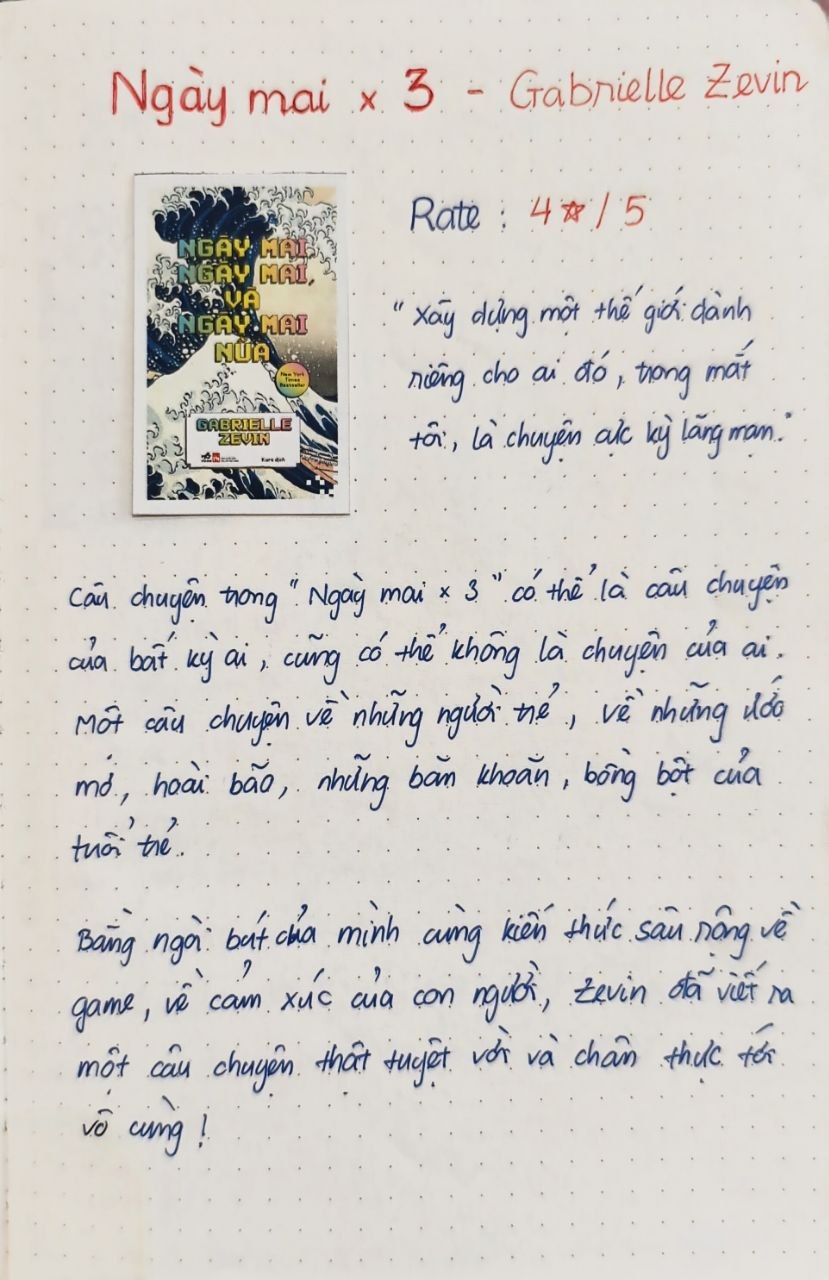 Ngày mai x 3 - Gabrielle Zevin
NGÀY MAI,
NGÀY MAI,
VÀ
NGÀY MAI
NỮA
New York
Times
Bestseller
GABRIELLE
ZEVIN
Kura dịch
Rate : 4☆/5
"Xây dựng một thế giới dành
riêng cho ai đó, trong mắt
tôi, là chuyện cực kỳ lãng mạn."
Câu chuyện trong "Ngày mai x 3" có thể là câu chuyện
của bất kỳ ai, cũng có thể không là chuyện của ai.
Một câu chuyện về những người trẻ, về những ước
mơ, hoài bão, những băn khoăn, bồng bột của
tuổi trẻ.
Bằng ngòi bút của mình cùng kiến thức sâu rộng về
game, về cảm xúc của con người, Zevin đã viết ra
một câu chuyện thật tuyệt vời và chân thực tới
vô cùng!